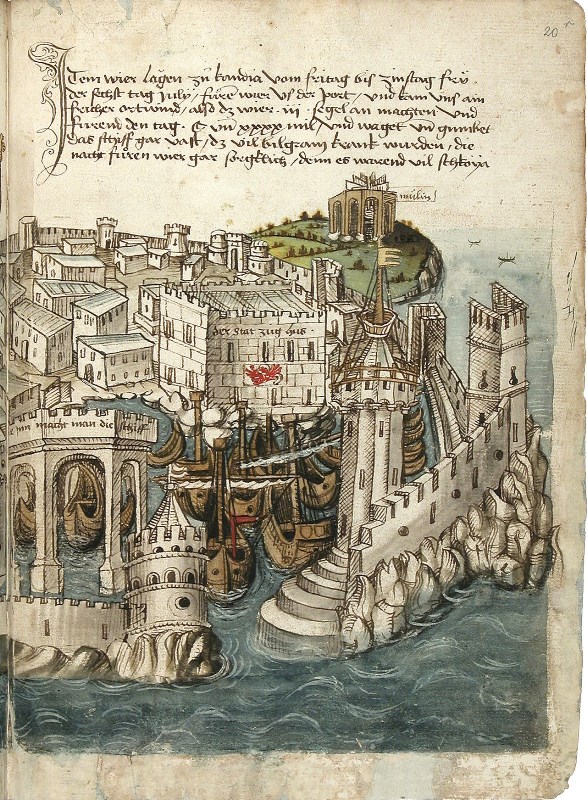 20
Item wier lagen zu kandia vom fritag bis zinstag fry
der sechst tag July / furē wier vs der port / und kam vns ain
ortwind / also dz wier iii segel an machten und
furend den tag C vn xxxx mil / und waget vn gumbet
das schyff gar vast / dz vil bilgram krank wurden / die
nacht furen wier gar sorgklich / denn es warend vil schkoya
mülin
der stat zug hus
inn macht man die schiff